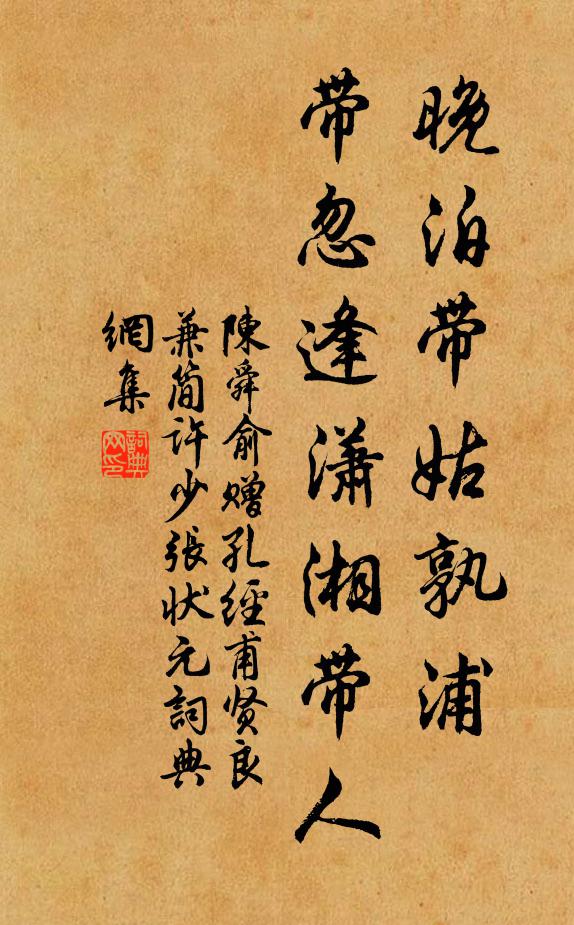 晚泊带姑孰浦
带忽逢潇湘带人
陳舜俞赠孔經甫贤良
兼简許少張状元詞典
網集
詞典網印